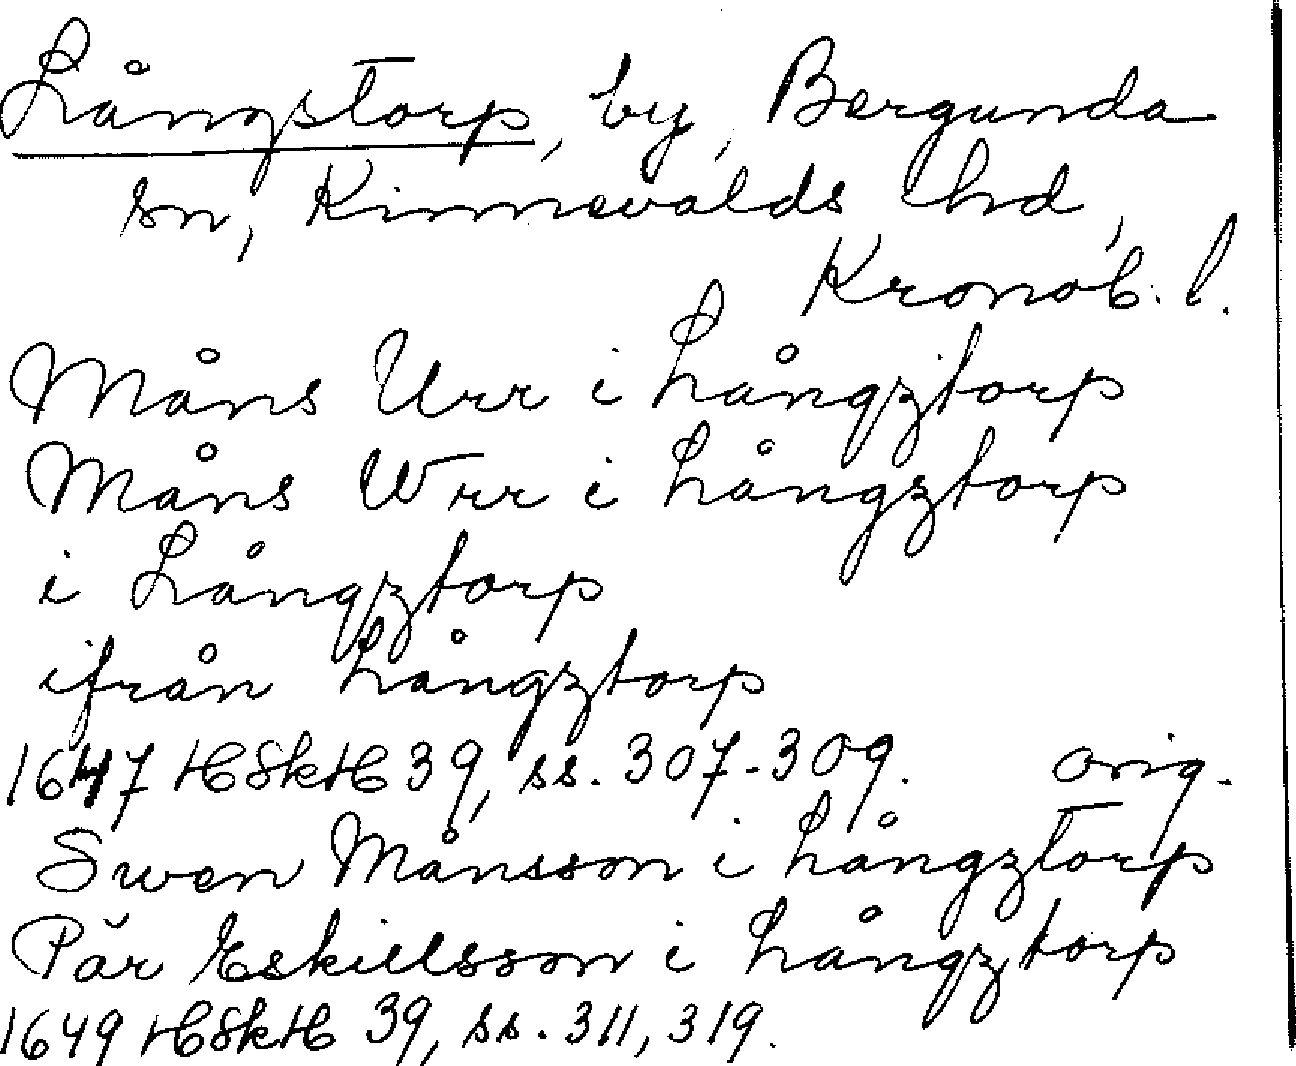 Långstorp, by, Bergunda
sn, Kinnevalds hd,
Kronob. l.
Måns Urr i Långztorp
Måns Wrr i Långztorp
i Långztorp
ifrån Långztorp
1647 HSkH 39, ss. 307-309. orig.
Swen Månsson i Långztorp
Pär Eskillsson i Långztorp
1649 HSkH 39, ss. 311, 319.